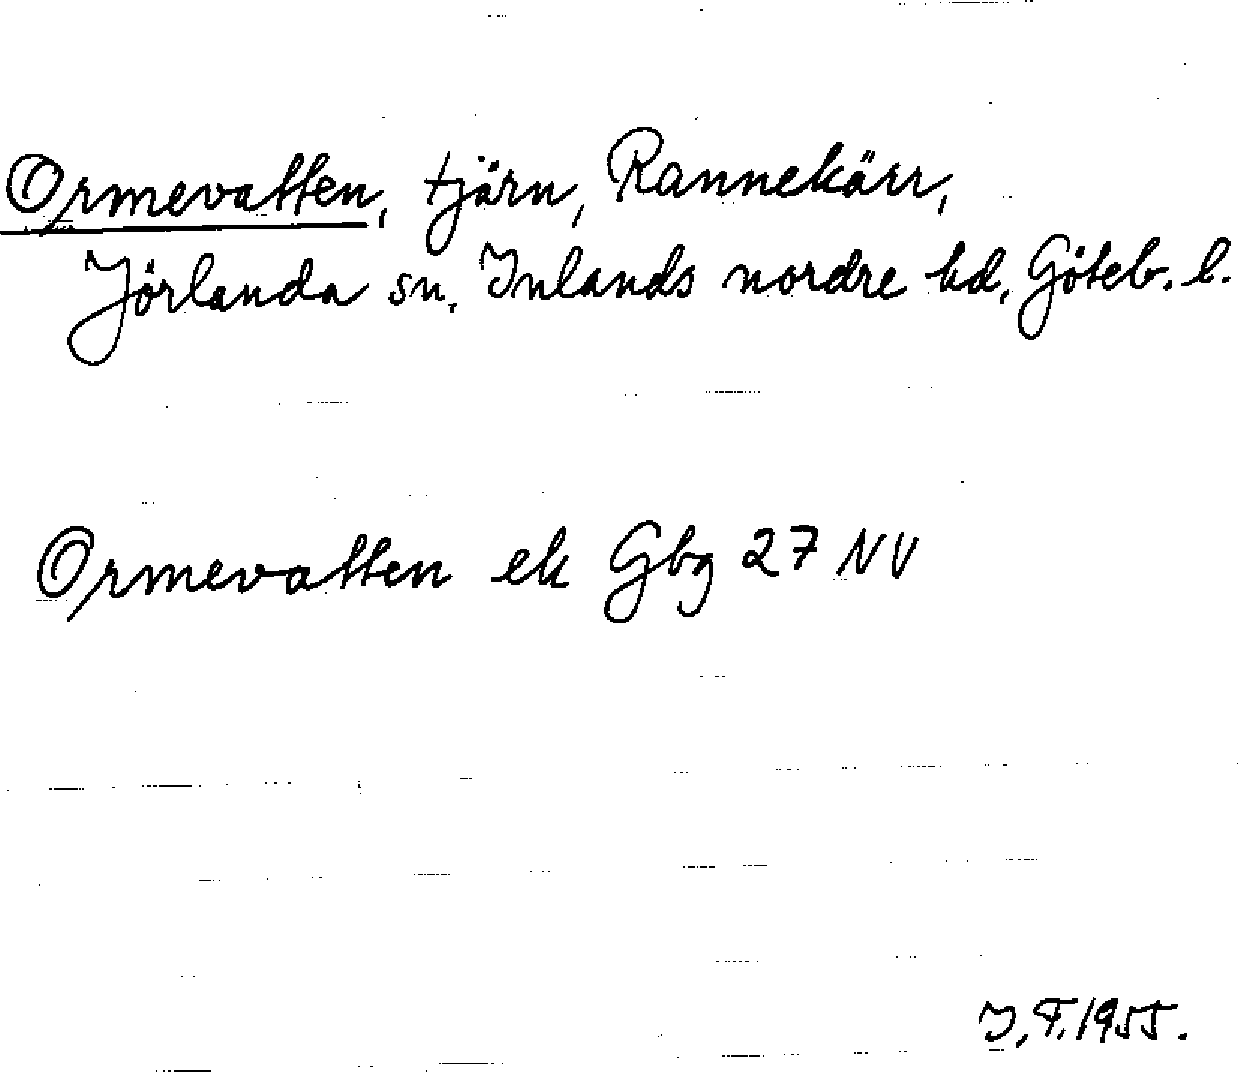 Ormevatten, tjärn, Rannekärr,
Jörlanda sn. Inlands nordre hd, Göteb. l.
Ormevatten ek Gbg 27 NV
J, F. 1955.